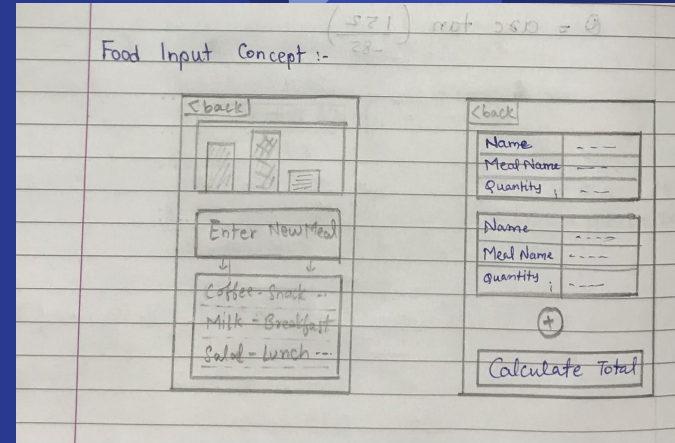 Food Input Concept :-
<back
Enter New Meal
Coffee - Snack --
Milk - Breakfast
Salad - Lunch ---
<back
Name ---
Meal Name --
Quantity ; --
Name ----
Meal Name ----
Quantity ; ---
+
Calculate Total